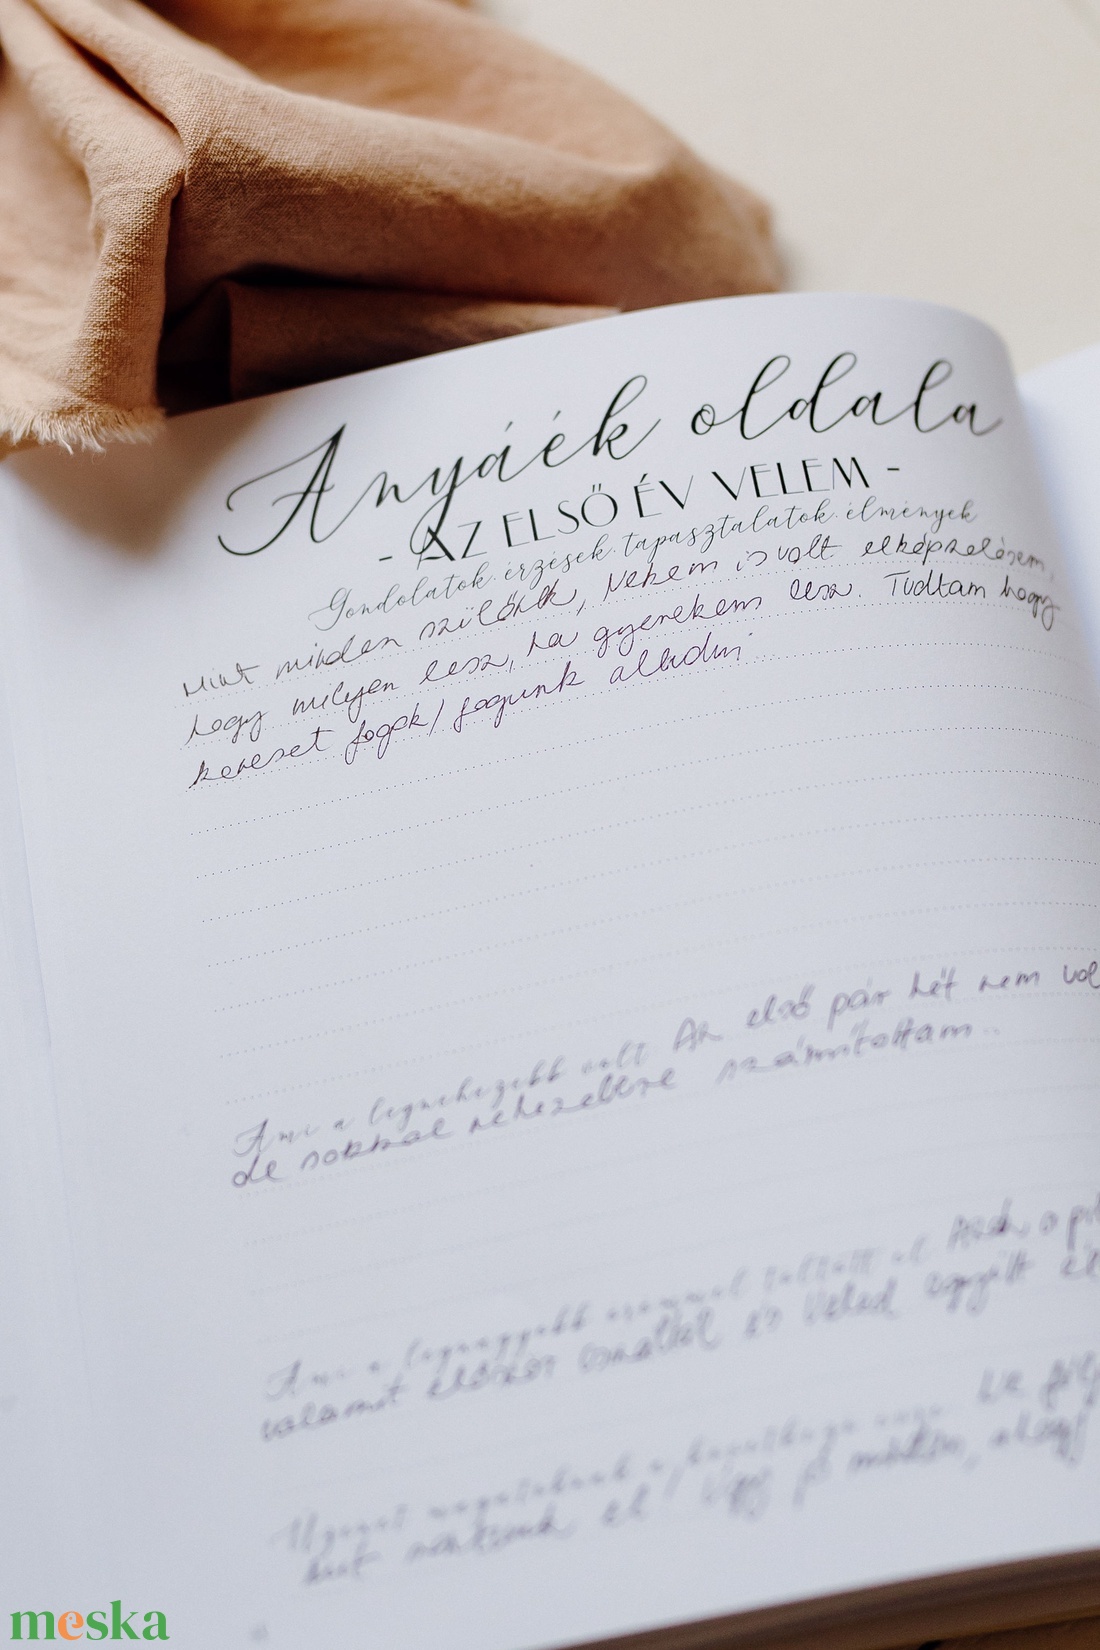 Anyáék oldala
- AZ ELSŐ ÉV VELEM -
Gondolatok. érzések. tapasztalatok. élmények
Mint minden szülőnek, Nekem is volt elképzelésem,
hogy milyen lesz, ha gyerekem lesz. Tudtam hogy
keveset fogok/fogunk aludni
Ami a legnehezebb volt Az első pár hét nem vol
de sokkal nehezebbre számítottam..
Ami a legnagyobb örömmel töltött el
valamit először csináltál és Veled együtt
meska